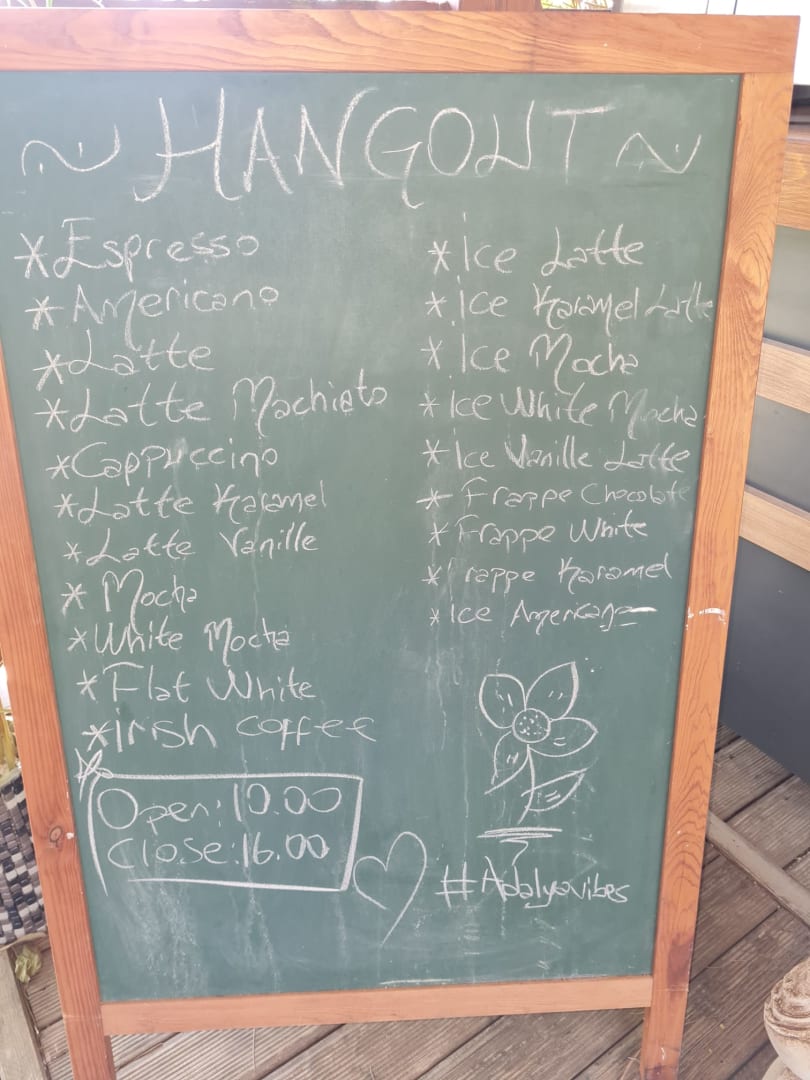 ~ HANGOUT ~
* Espresso
* Americano
* Latte
* Latte Machiato
* Cappuccino
* Latte Karamel
* Latte Vanille
* Mocha
* White Mocha
* Flat White
* Irish coffee
Open: 10.00
Close: 16.00
* Ice Latte
* Ice Karamel Latte
* Ice Mocha
* Ice White Mocha
* Ice Vanille Latte
* Frappe Chocolate
* Frappe White
* Frappe Karamel
* Ice Americano
#Adalyavibes